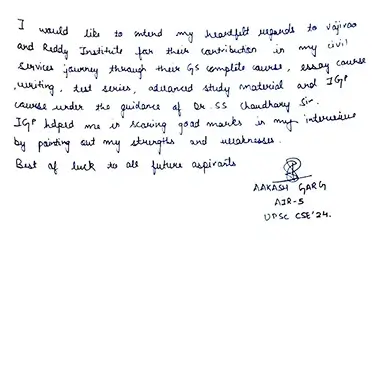 I would like to extend my heartfelt regards to Vajirao
and Reddy Institute for their contribution in my civil
services journey through their GS complete course, essay course
, writing, test series, advanced study material and IGP
course under the guidance of Dr. SS Chaudhary Sir.
IGP helped me in scoring good marks in my interview
by pointing out my strengths and weaknesses.
Best of luck to all future aspirants
AAKASH GARG
AIR-5
UPSC CSE'24.